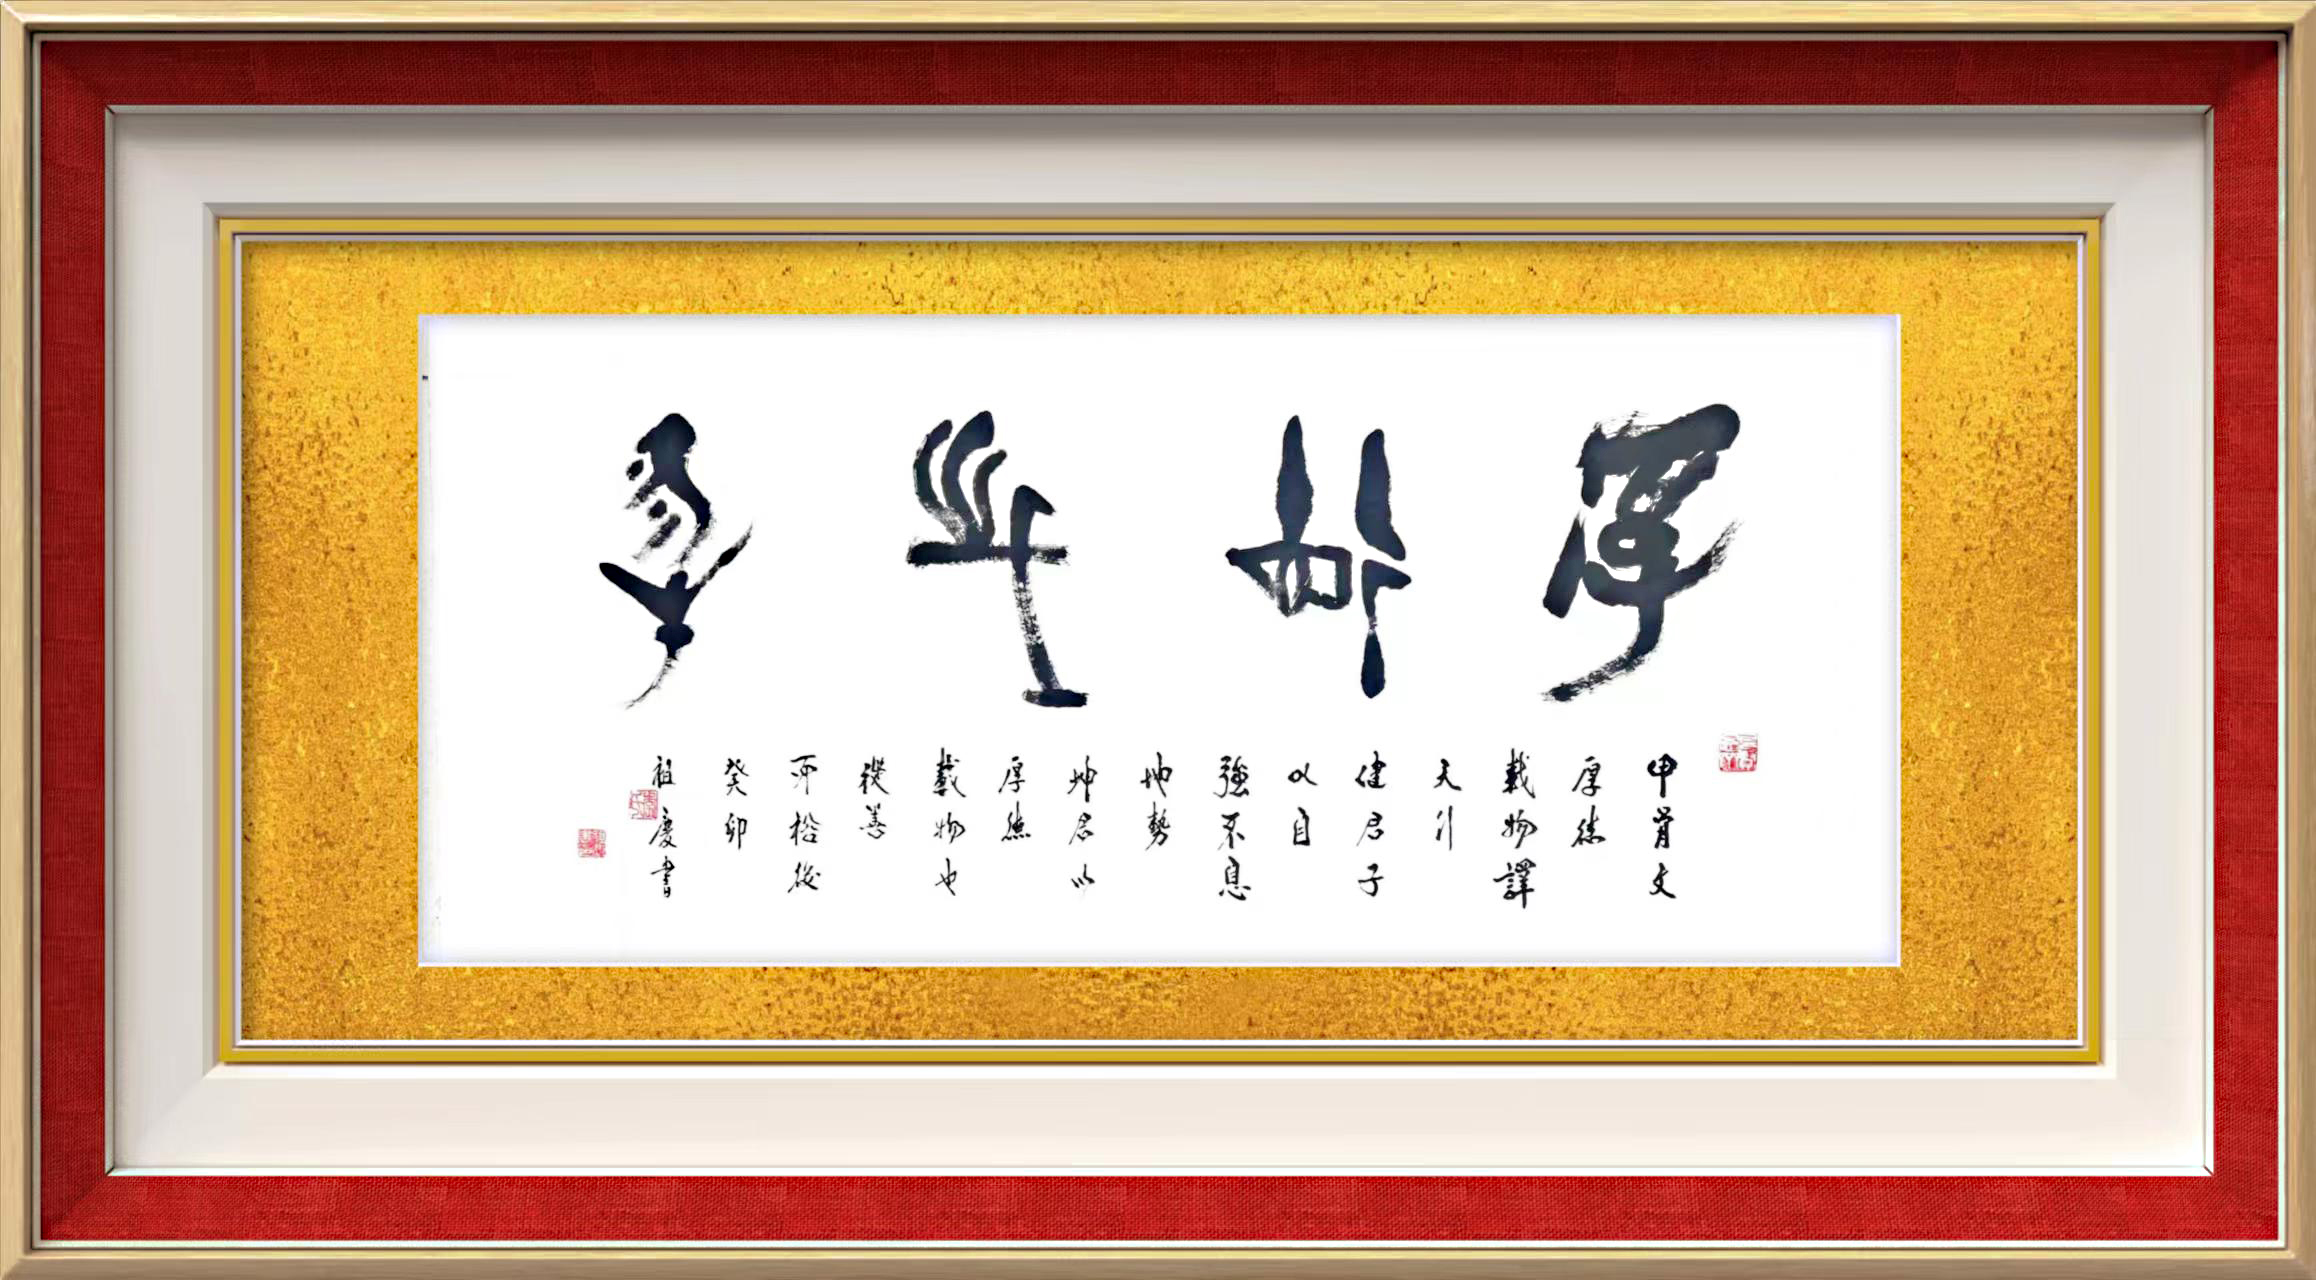 厚德載物
甲骨文
厚德
載物譯
天行
健君子
以自
強不息
地勢
坤君以
厚德
載物也
從善
松後
癸卯
祖慶書